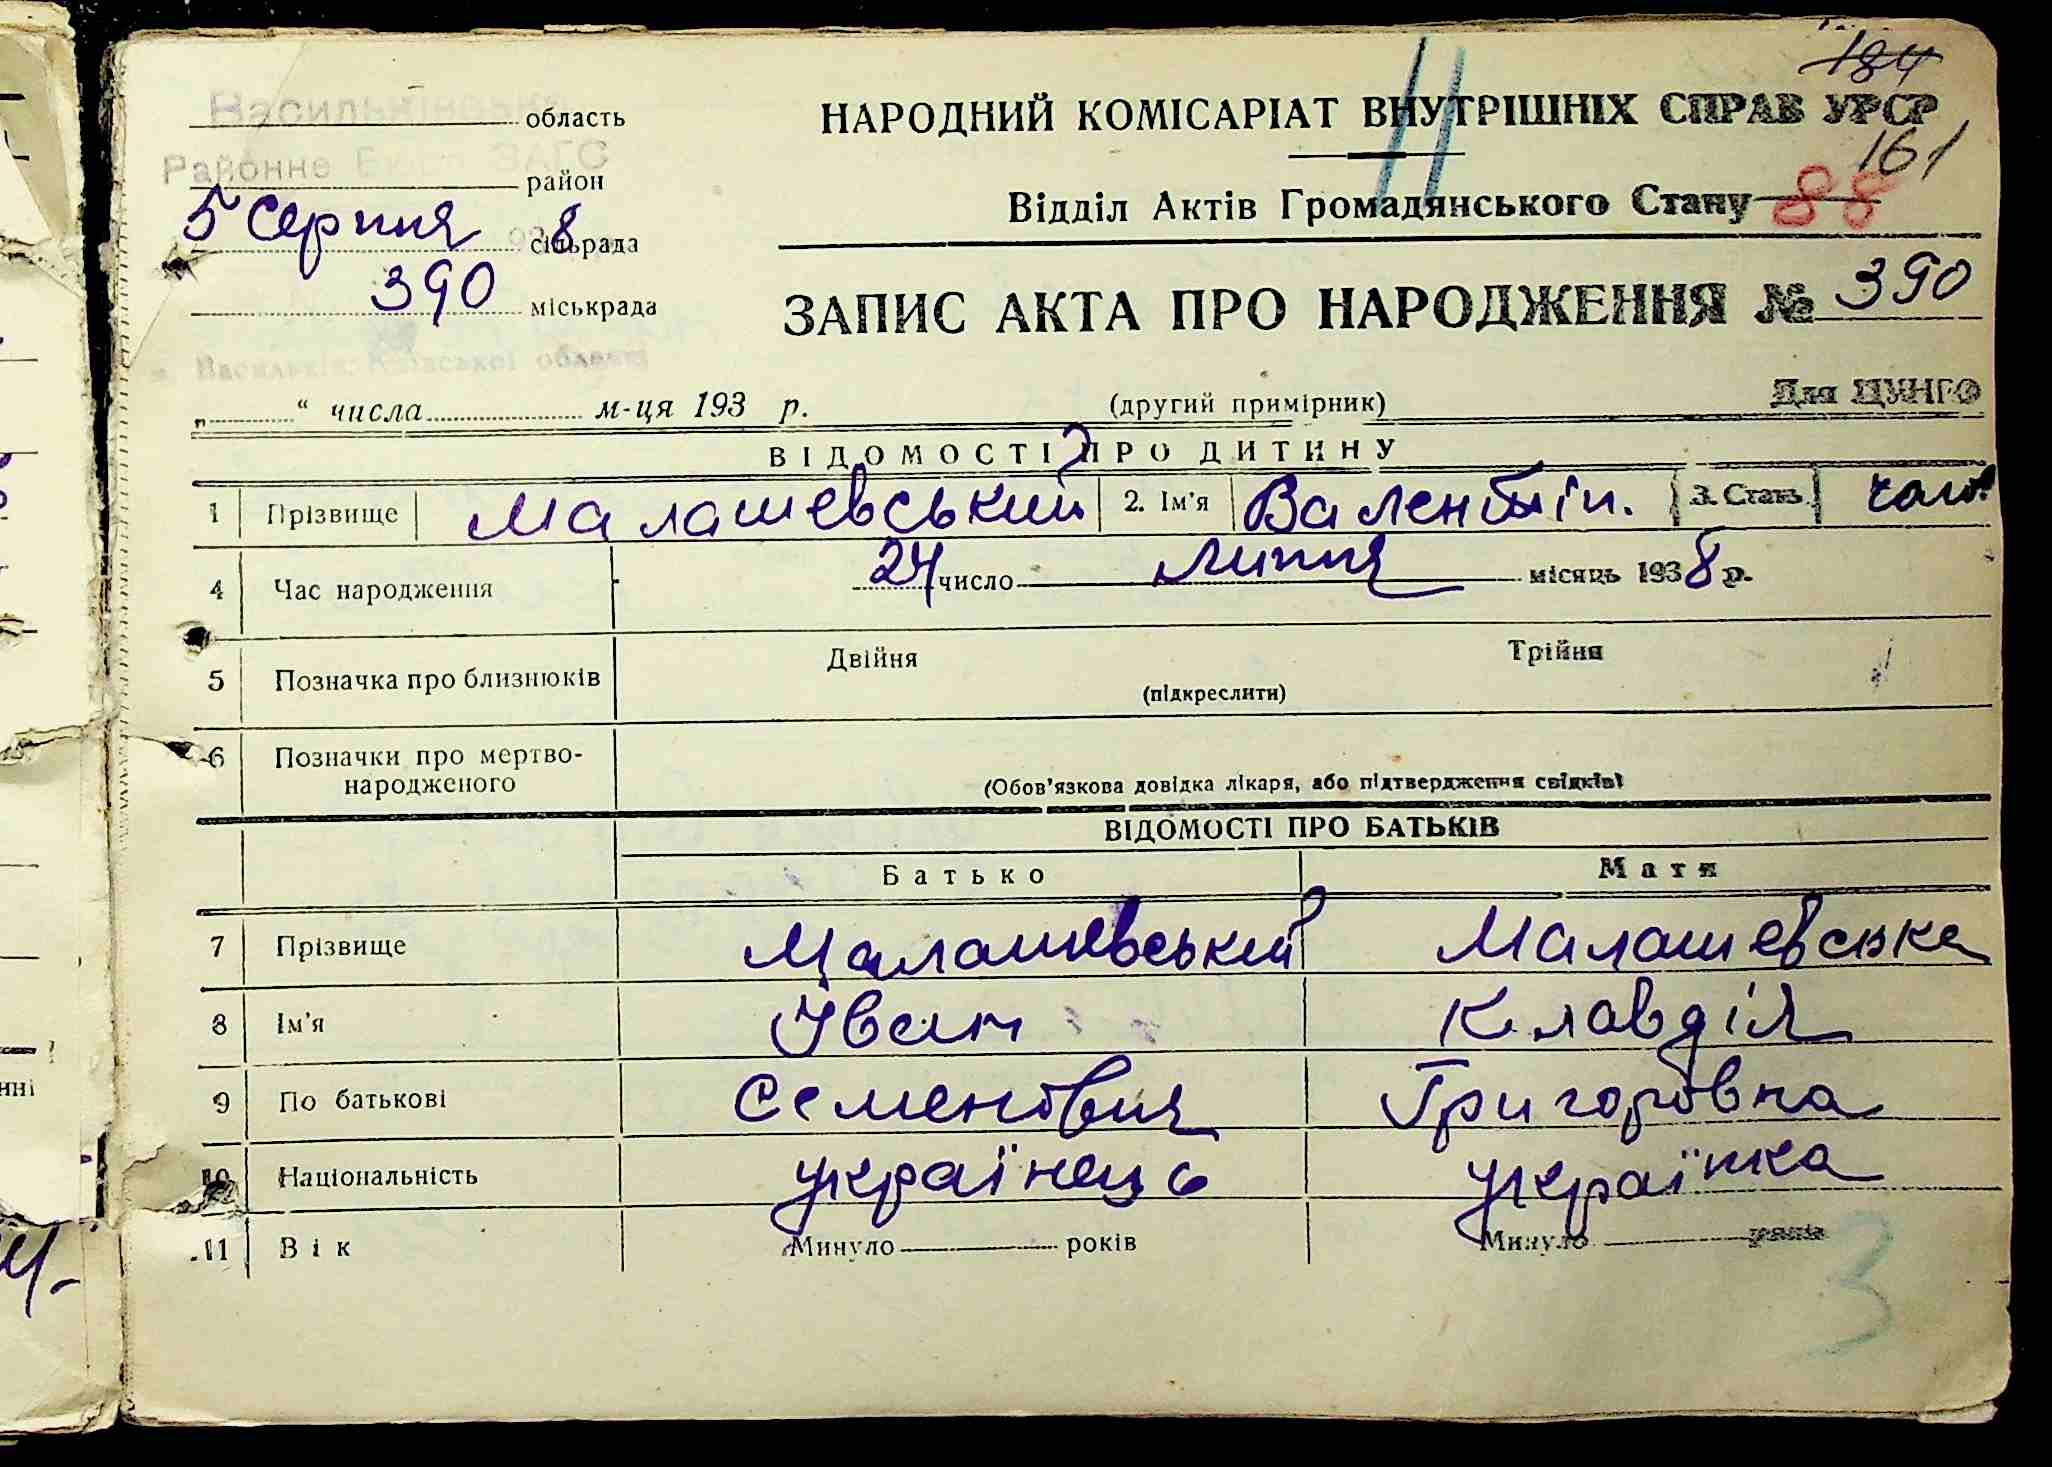 184
Васильківське область
НАРОДНИЙ КОМІСАРІАТ ВНУТРІШНІХ СПРАВ УРСР
161
Районне Бюро ЗАГС район
Відділ Актів Громадянського Стану 88
5 Серпня 1938 сільрада
390 міськрада
ЗАПИС АКТА ПРО НАРОДЖЕННЯ № 390
м. Васильків, Київської області
„ “ числа м-ця 193 р.
(другий примірник)
Для ЦУНГО
ВІДОМОСТІ ПРО ДИТИНУ
1 Прізвище Малашевський 2. Ім'я Валентін. 3. Стать чол.
4 Час народження 24 число липня місяць 1938 р.
5 Позначка про близнюків Двійня Трійня
(підкреслити)
6 Позначки про мертво-
народженого
(Обов'язкова довідка лікаря, або підтвердження свідків)
ВІДОМОСТІ ПРО БАТЬКІВ
Батько Мати
7 Прізвище Малашевський Малашевська
8 Ім'я Іван Клавдія
9 По батькові Семенович Григоровна
10 Національність українець українка
11 Вік Минуло років Минуло років
3